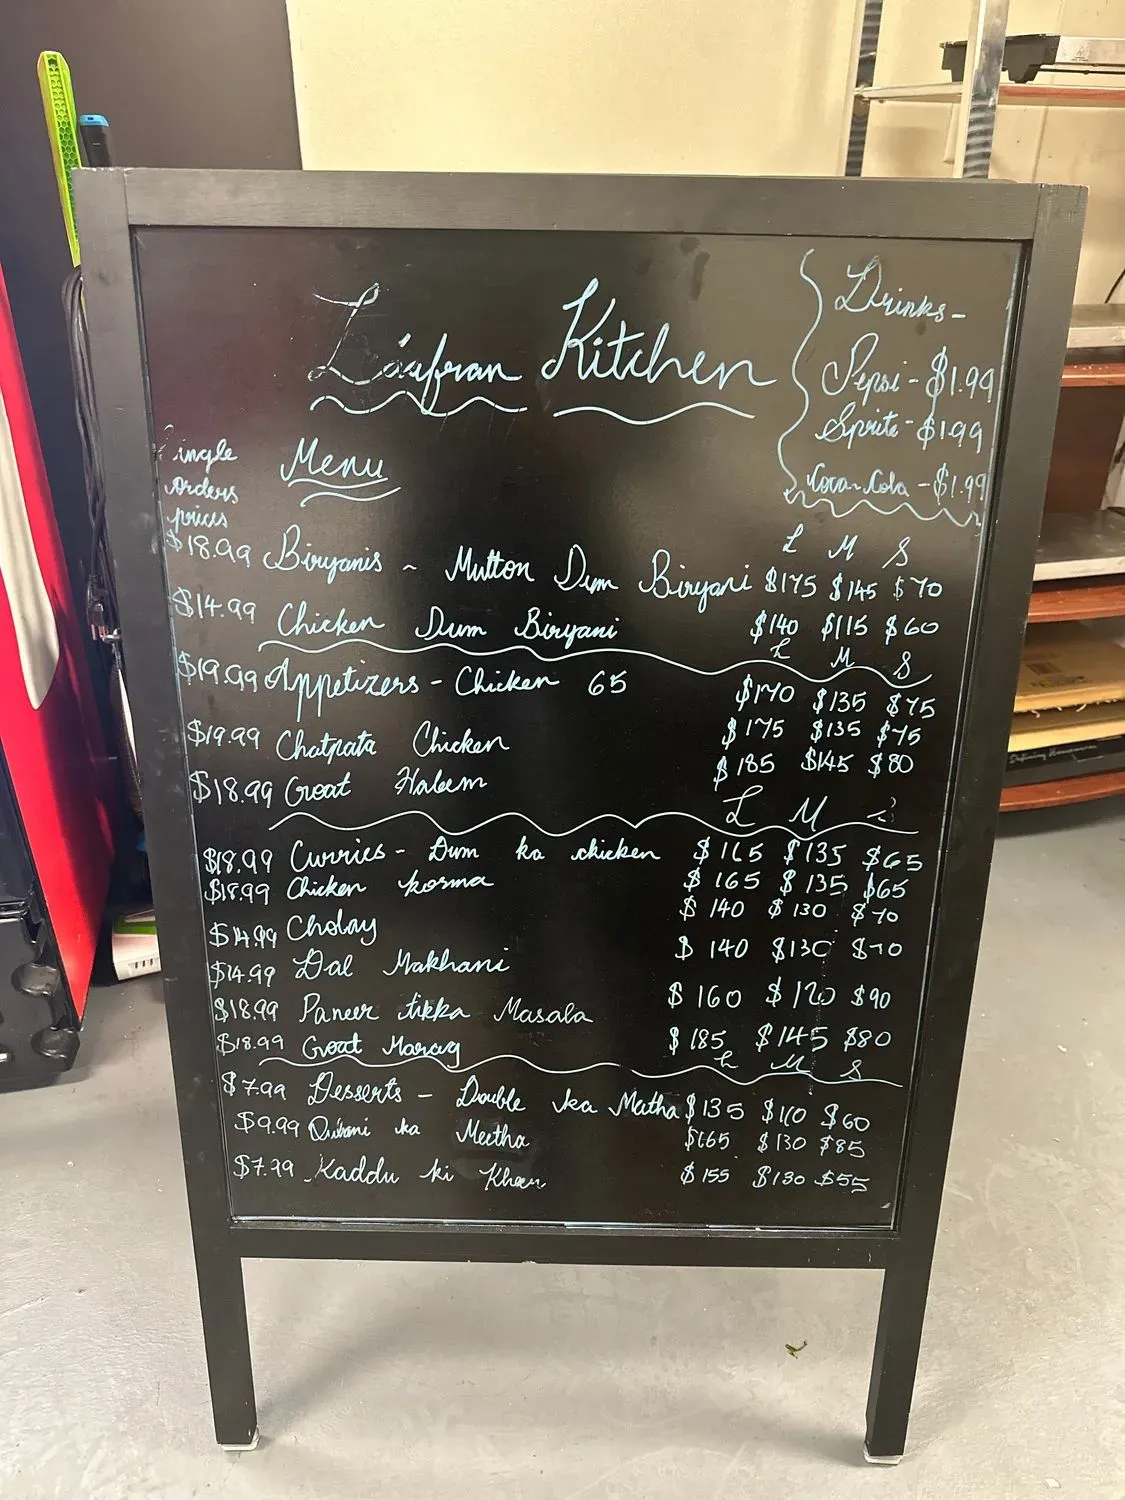 Zāufran Kitchen
Drinks-
Pepsi - $1.99
Sprite - $1.99
Coca-Cola - $1.99
Single
orders
prices
Menu
L M S
$18.99 Biryanis ~ Mutton Dum Biryani $175 $145 $70
$14.99 Chicken Dum Biryani $140 $115 $60
L M S
$19.99 Appetizers - Chicken 65 $170 $135 $75
$19.99 Chatpata Chicken $175 $135 $75
$18.99 Goat Haleem $185 $145 $80
L M S
$18.99 Curries - Dum ka chicken $165 $135 $65
$18.99 Chicken korma $165 $135 $65
$14.99 Cholay $140 $130 $70
$14.99 Dal Makhani $140 $130 $70
$18.99 Paneer tikka Masala $160 $120 $90
$18.99 Goat Marag $185 $145 $80
L M S
$7.99 Desserts - Double ka Matha $135 $110 $60
$9.99 Qubani ka Meetha $165 $130 $85
$7.99 Kaddu ki Kheer $155 $130 $55